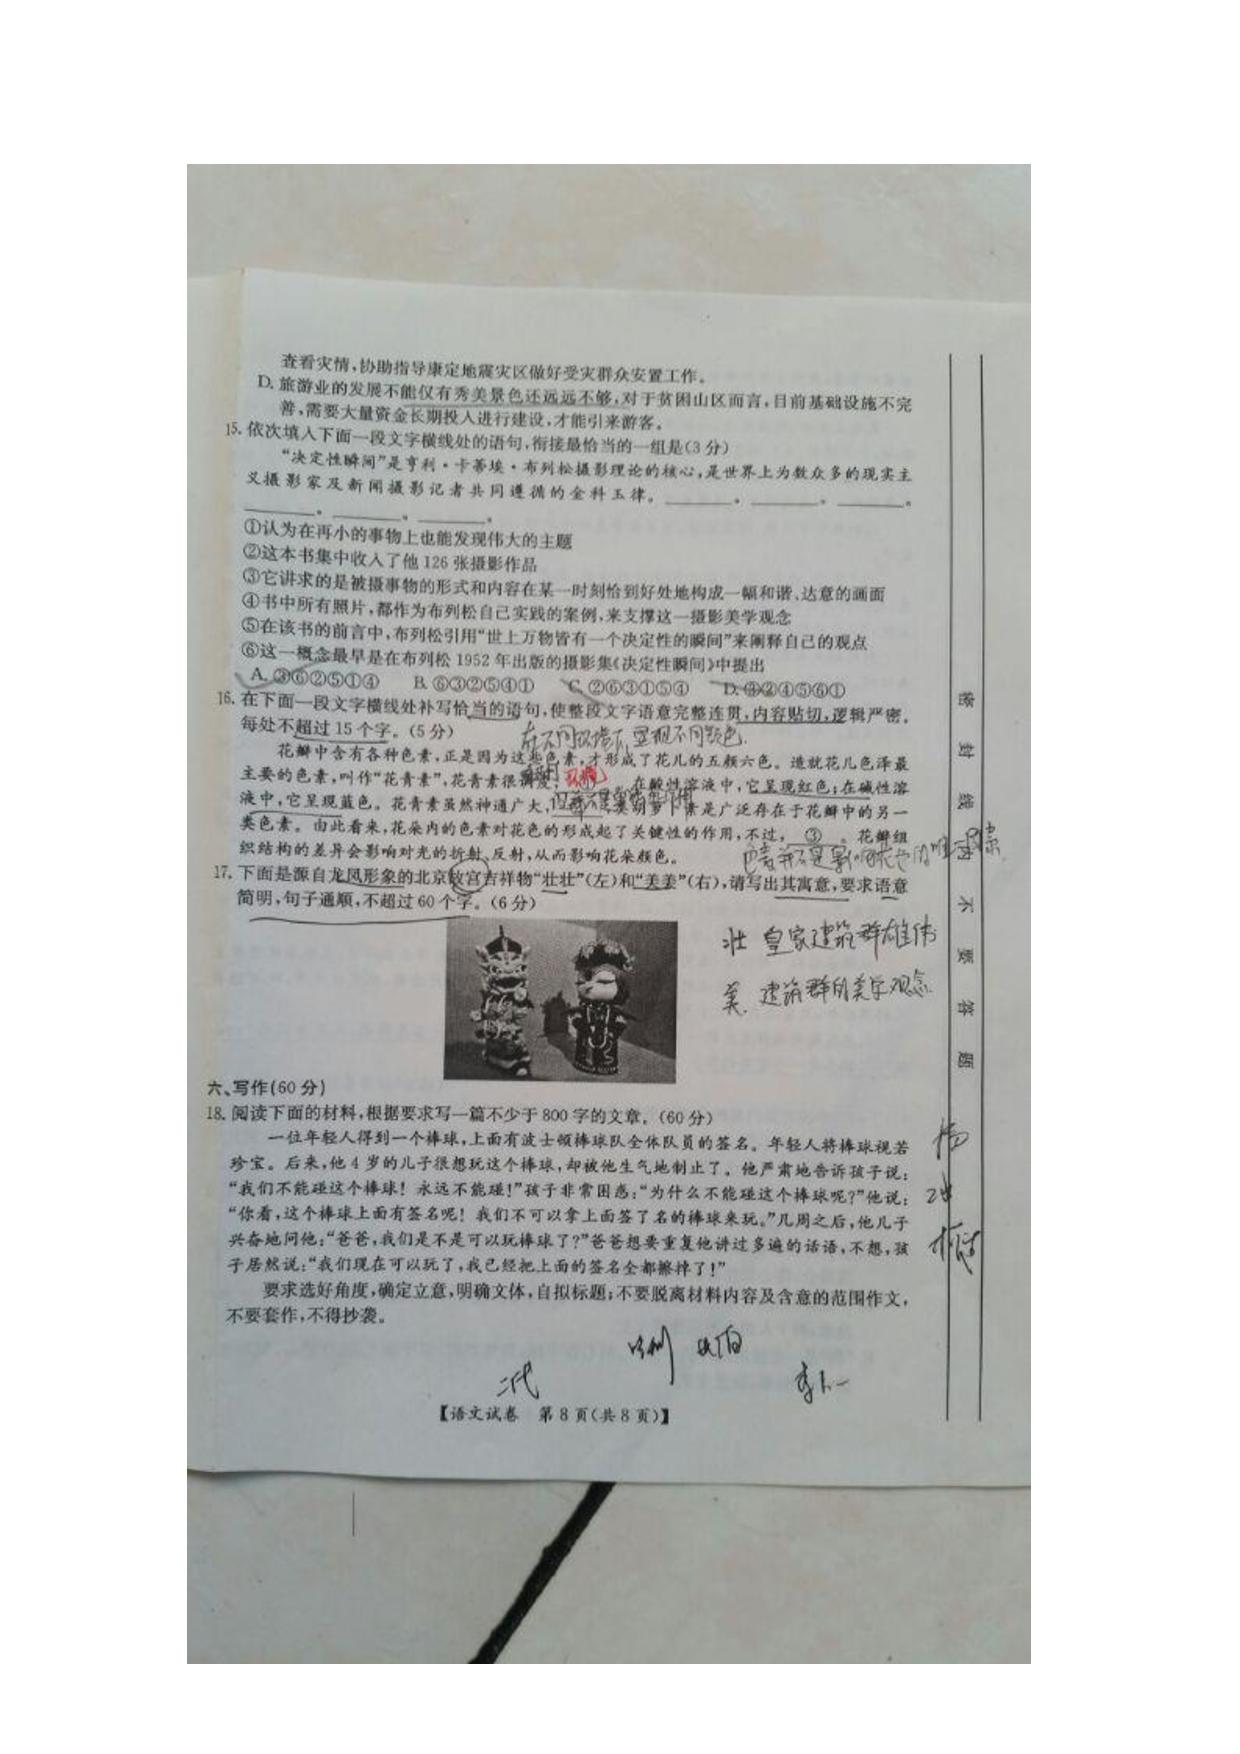 查看灾情,协助指导康定地震灾区做好受灾群众安置工作。
D. 旅游业的发展不能仅有秀美景色还远远不够,对于贫困山区而言,目前基础设施不完
善,需要大量资金长期投入进行建设,才能引来游客。
15. 依次填入下面一段文字横线处的语句,衔接最恰当的一组是(3分)
“决定性瞬间”是亨利·卡蒂埃·布列松摄影理论的核心,是世界上为数众多的现实主
义摄影家及新闻摄影记者共同遵循的金科玉律。______。______。______。
______。______。______。
①认为在再小的事物上也能发现伟大的主题
②这本书集中收入了他126张摄影作品
③它讲求的是被摄事物的形式和内容在某一时刻恰到好处地构成一幅和谐、达意的画面
④书中所有照片,都作为布列松自己实践的案例,来支撑这一摄影美学观念
⑤在该书的前言中,布列松引用“世上万物皆有一个决定性的瞬间”来阐释自己的观点
⑥这一概念最早是在布列松1952年出版的摄影集《决定性瞬间》中提出
A. ③⑥②⑤①④ B. ⑥③②⑤④① C. ②⑥③①⑤④ D. ③②④⑤⑥①
16. 在下面一段文字横线处补写恰当的语句,使整段文字语意完整连贯,内容贴切,逻辑严密。
每处不超过15个字。(5分)
在不同环境下,呈现不同颜色.
花瓣中含有各种色素,正是因为这些色素,才形成了花儿的五颜六色。造就花儿色泽最
主要的色素,叫作“花青素”,花青素很 在酸性溶液中,它呈现红色;在碱性溶
液中,它呈现蓝色。花青素虽然神通广大, 类胡萝卜素是广泛存在于花瓣中的另一
类色素。由此看来,花朵内的色素对花色的形成起了关键性的作用,不过, ③ 。花瓣组
织结构的差异会影响对光的折射、反射,从而影响花朵颜色。
色素并不是影响花色的唯一因素
17. 下面是源自龙凤形象的北京故宫吉祥物“壮壮”(左)和“美美”(右),请写出其寓意,要求语意
简明,句子通顺,不超过60个字。(6分)
壮 皇家建筑群雄伟
美 建筑群的美学观念
密封线内不要答题
六、写作(60分)
18. 阅读下面的材料,根据要求写一篇不少于800字的文章。(60分)
一位年轻人得到一个棒球,上面有波士顿棒球队全体队员的签名。年轻人将棒球视若
珍宝。后来,他4岁的儿子很想玩这个棒球,却被他生气地制止了。他严肃地告诉孩子说:
“我们不能碰这个棒球!永远不能碰!”孩子非常困惑:“为什么不能碰这个棒球呢?”他说:
“你看,这个棒球上面有签名呢!我们不可以拿上面签了名的棒球来玩。”几周之后,他儿子
兴奋地问他:“爸爸,我们是不是可以玩棒球了?”爸爸想要重复他讲过多遍的话语,不想,孩
子居然说:“我们现在可以玩了,我已经把上面的签名全都擦掉了!”
要求选好角度,确定立意,明确文体,自拟标题;不要脱离材料内容及含意的范围作文,
不要套作,不得抄袭。
【语文试卷 第8页(共8页)】